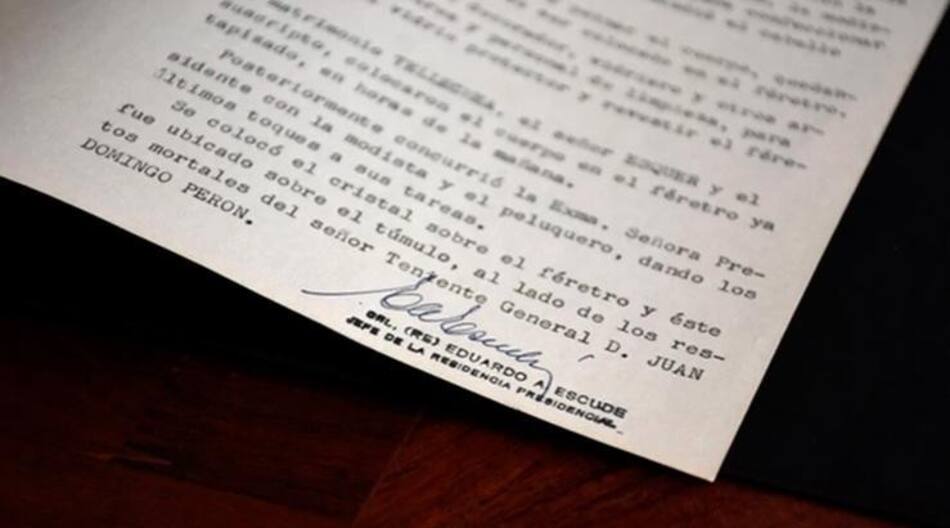 poner el cuerpo, quedan-
ser colocado en el féretro,
decorador, vidriero y otros ar-
y personal de limpieza, para
vidrio protector y revestir el fére-
matrimonio TELLECHEA, el señor ESQUER y el
suscripto, colocaron el cuerpo en el féretro ya
tapisado, en horas de la mañana.
Posteriormente concurrió la Exma. Señora Pre-
sidente con la modista y el peluquero, dando los
últimos toques a sus tareas.
Se colocó el cristal sobre el féretro y éste
fue ubicado sobre el túmulo, al lado de los res-
tos mortales del señor Teniente General D. JUAN
DOMINGO PERON.
GRL. (RE) EDUARDO A ESCUDE
JEFE DE LA RESIDENCIA PRESIDENCIAL